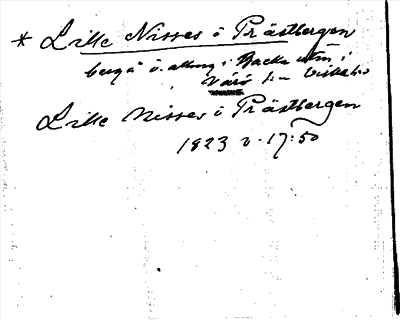 * Lille Nisses i Prästbergen
berg å ö. allm. i Backa utm. i
Värö sn Viske hd
Lille Nisses i Prästbergen
1823 v. 17:50